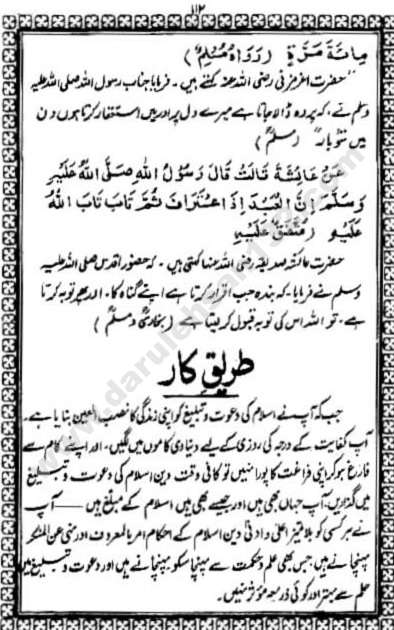 ۱۱۲
مِائَةَ مَرَّةٍ (رَوَاہُ مُسْلِمٌ)
"حضرت اغر مزنی رضی اللہ عنہ کہتے ہیں۔ فرمایا جناب رسول اللہ صلی اللہ علیہ
وسلم نے، کہ پردہ ڈالا جاتا ہے میرے دل پر اور میں استغفار کرتا ہوں دن
میں سو بار" (مسلم)
عَنْ عَائِشَةَ قَالَتْ قَالَ رَسُوْلُ اللهِ صَلَّى اللهُ عَلَيْهِ
وَسَلَّمَ اِنَّ الْعَبْدَ اِذَا اعْتَرَفَ ثُمَّ تَابَ تَابَ اللهُ
عَلَيْهِ (مُتَّفَقٌ عَلَيْهِ)
حضرت عائشہ صدیقہ رضی اللہ عنہا کہتی ہیں۔ کہ حضور اقدس صلی اللہ علیہ
وسلم نے فرمایا۔ کہ بندہ جب اقرار کرتا ہے اپنے گناہ کا۔ اور پھر توبہ کرتا
ہے۔ تو اللہ اس کی توبہ قبول کر لیتا ہے (بخاری و مسلم)
طریقِ کار
جب کہ آپ نے اسلام کی دعوت و تبلیغ کو اپنی زندگی کا نصب العین بنایا ہے۔
آپ کفایت کے درجہ کی روزی کے لیے دنیاوی کاموں میں لگیں۔ اور اپنے کام سے
فارغ ہو کر اپنی فراغت کا پورا نہیں تو کافی وقت دین اسلام کی دعوت و تبلیغ
میں گذاریں، آپ جہاں بھی ہیں اور جیسے بھی ہیں اسلام کے مبلغ ہیں — آپ
نے ہر کسی کو بلا تمیز اعلیٰ و ادنیٰ دین اسلام کے احکام امر بالمعروف اور نہی عن المنکر
پہنچانے ہیں، جس بھی علم و حکمت سے پہنچا سکو پہنچانے ہیں اور دعوت و تبلیغ میں
علم سے بہتر اور کوئی ذریعہ مؤثر نہیں۔